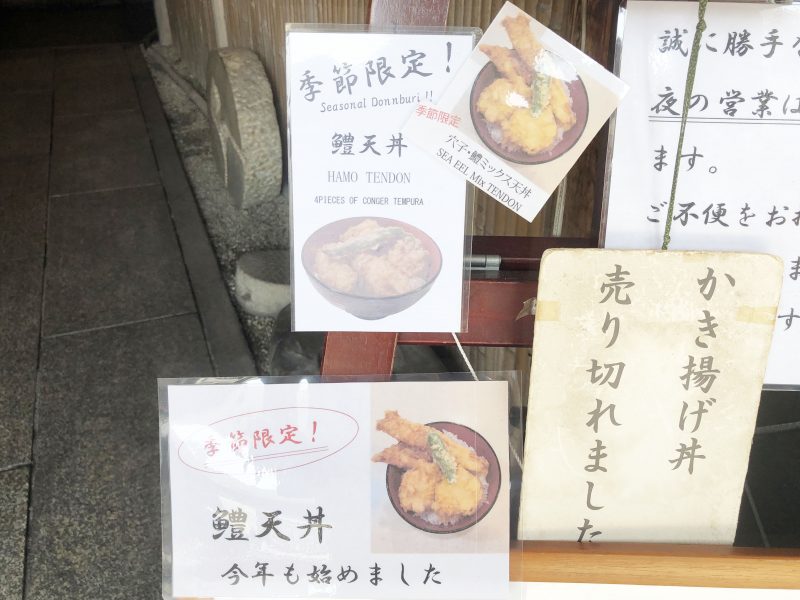 季節限定!
Seasonal Donnburi!!
鱧天丼
HAMO TENDON
4PIECES OF CONGER TEMPURA
季節限定
穴子・鱧ミックス天丼
SEA EEL Mix TENDON
誠に勝手
夜の営業は
ます。
ご不便をお
ま
す
かき揚げ丼
売り切れました
季節限定!
鱧天丼
今年も始めました